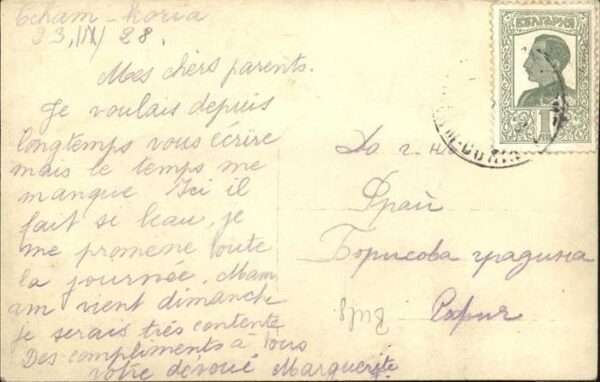 Tcham-Koria
23, IX / 28.
Mes chers parents.
Je voulais depuis
longtemps vous écrire
mais le temps me
manque Ici il
fait si beau, je
me promene toute
la journée. Mam
am vient dimanche
je serais très contente
Des compliments à tous
votre dévoué Marguerite
БЪЛГАРИЯ
1
До г-н
Фрай
Борисова градина
София
Bulg